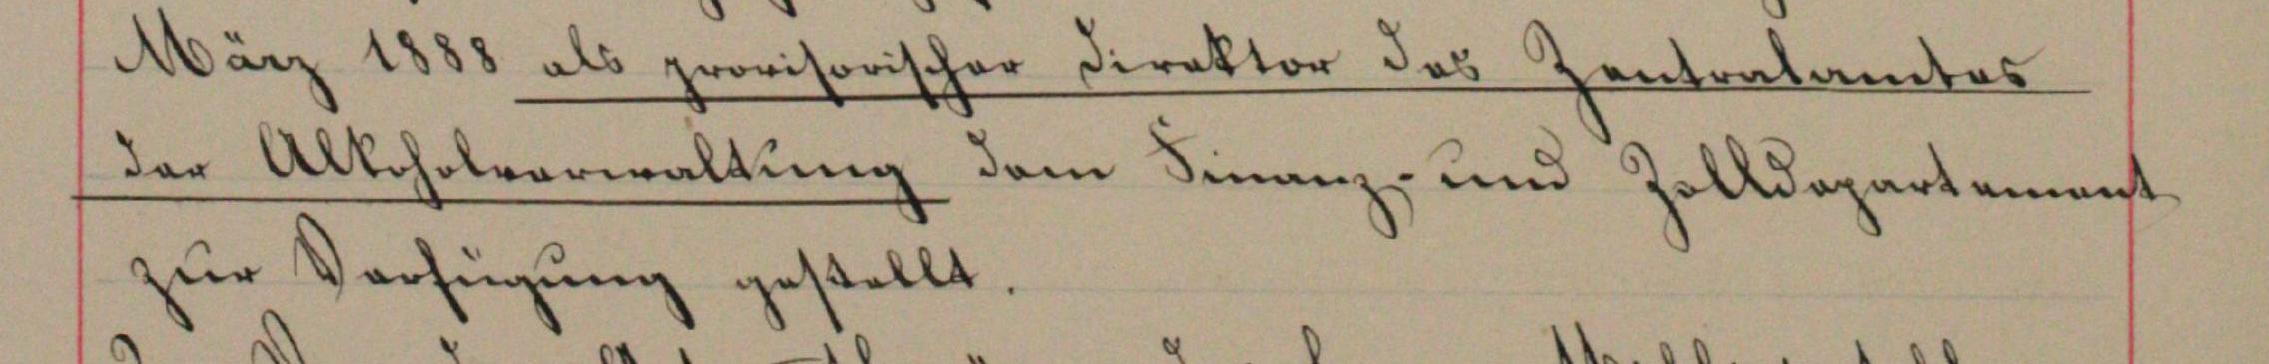 März 1888 als provisorischer Direktor des Zentralamtes
der Alkoholverwaltung dem Finanz- und Zolldepartement
zur Verfügung gestellt.